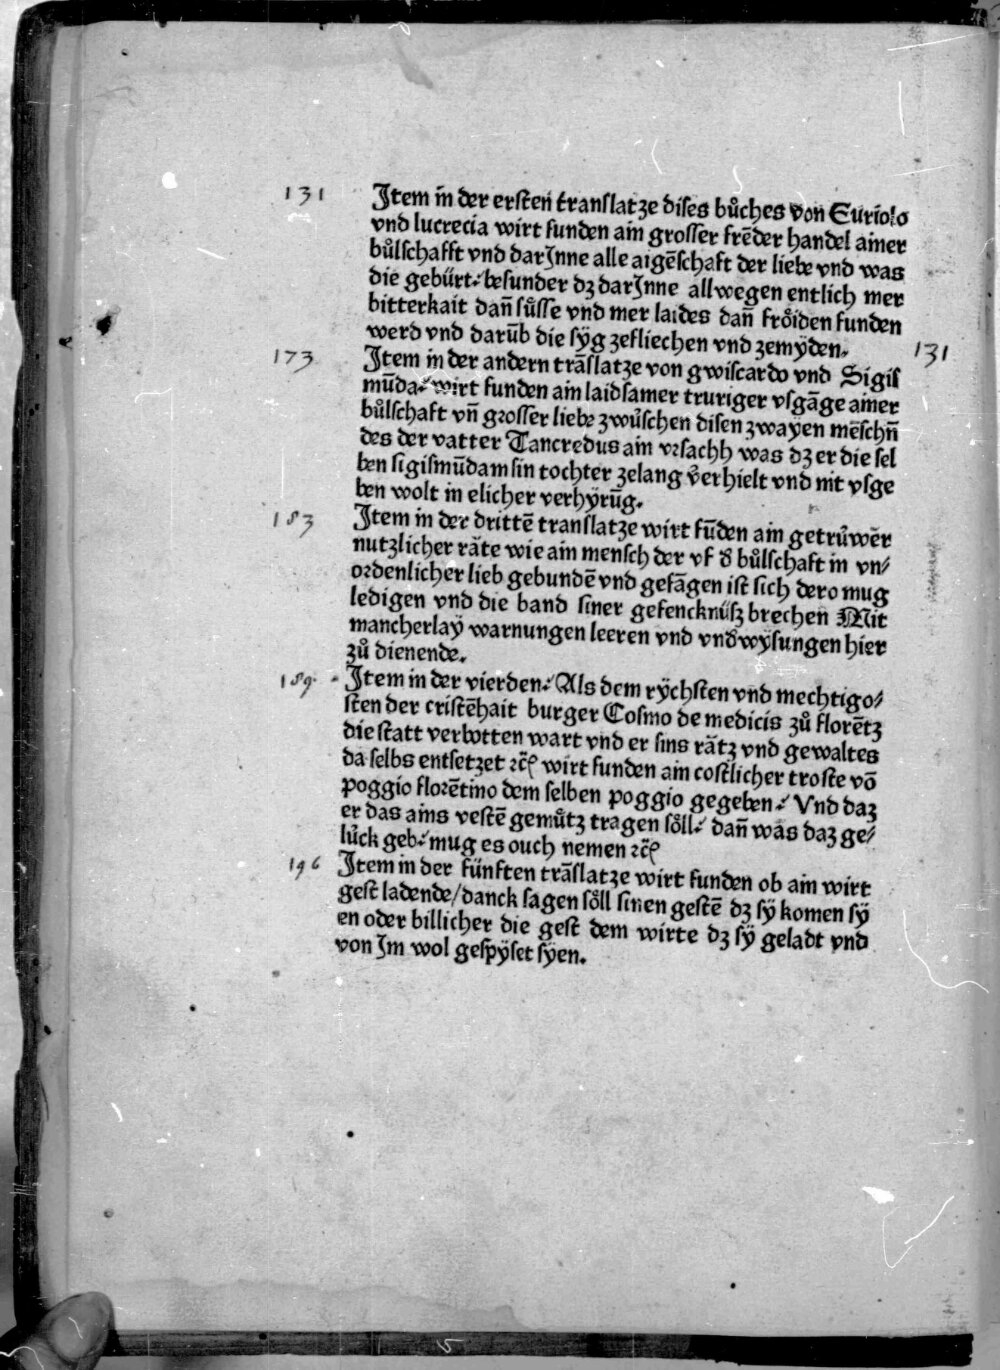 131 Item in der ersten translatze dises bůches von Euriolo
vnd lucrecia wirt funden ain grosser frēder handel ainer
bůlschafft vnd darJnne alle aigēschaft der liebe vnd was
die gebürt⸗ besunder dz darJnne allwegen entlich mer
bitterkait dañ sůsse vnd mer laides dañ frǒiden funden
werd vnd darūb die sÿg zefliechen vnd zemÿden. 131
173 Item in der andern trāslatze von gwiscardo vnd Sigis
mūda⸗ wirt funden ain laidsamer truriger vsgāge ainer
bůlschaft vñ grosser liebe zwůschen disen zwayen mēschñ
des der vatter Tancredus ain vrsachh was dz er die sel
ben sigismūdam sin tochter zelang v̊erhielt vnd nit vsge
ben wolt in elicher verhÿrūg.
183 Item in der drittē translatze wirt fūden ain getrůwēr
nutzlicher räte wie ain mensch der vf d̛ bůlschaft in vn⸗
ordenlicher lieb gebundē vnd gefāgen ist sich dero mug
ledigen vnd die band siner gefencknüsz brechen Mit
mancherlaÿ warnungen leeren vnd vnd̛wÿsungen hier
zů dienende.
189. Item in der vierden⸗ Als dem rÿchsten vnd mechtigo⸗
sten der cristēhait burger Cosmo de medicis zů florētz
die statt verbotten wart vnd er sins rätz vnd gewaltes
da selbs entsetzet ⁊c̄ wirt funden ain costlicher troste vō
poggio florētino dem selben poggio gegeben⸗ Vnd daz
er das ains vestē gemůtz tragen sǒll⸗ dañ was daz ge⸗
lůck geb⸗ mug es ouch nemen ⁊c̄
196 Item in der fünften trāslatze wirt funden ob ain wirt
gest ladende/danck sagen sǒll sinen gestē dz sÿ komen sÿ
en oder billicher die gest dem wirte dz sÿ geladt vnd
von Jm wol gespÿset sÿen.